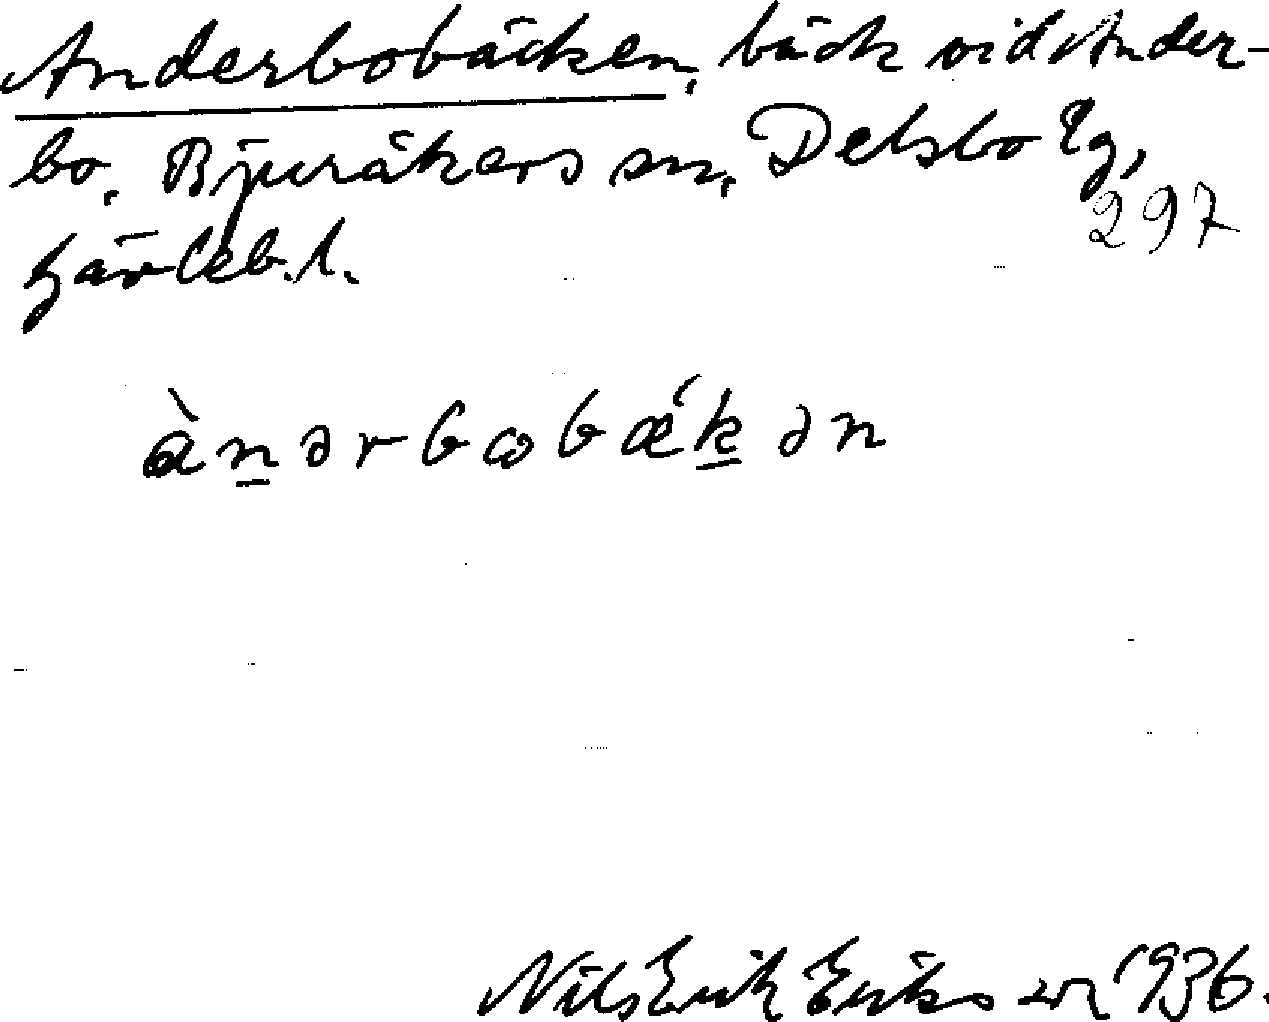 Anderbobäcken, bäck vid Ander-
bo, Bjuråkers sn, Delsbo tg,
297
Gävleb. l.
ànərbωbǽkən
Nils Erik Eriksson 1936.